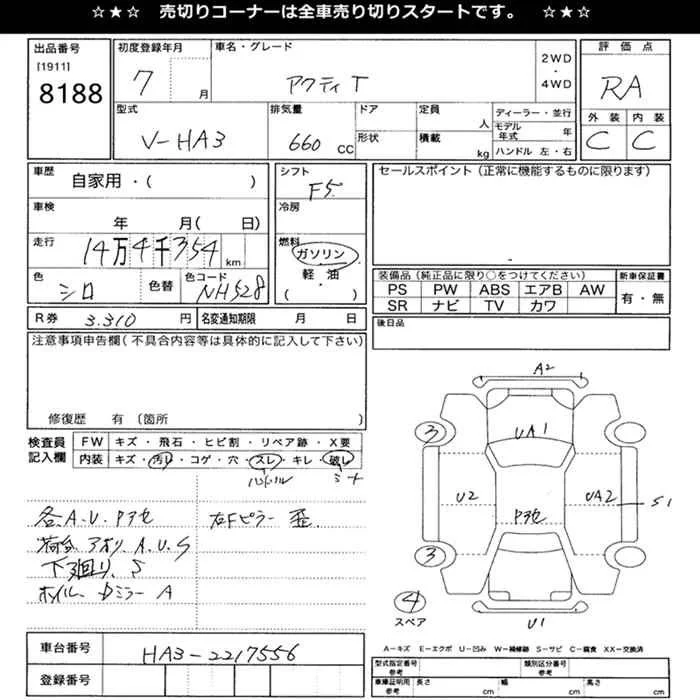 ☆★☆ 売切りコーナーは全車売り切りスタートです。 ☆★☆
出品番号 [1911] 8188
初度登録年月 7 月
車名・グレード アクティ T
2WD ・ 4WD
評価点 RA
外装 C 内装 C
型式 V-HA3
排気量 660 CC
ドア 形状
定員 人 積載 kg
ディーラー・並行
モデル年式 年
ハンドル 左・右
車歴 自家用・( )
車検 年 月( 日)
走行 14万4千354 km
色 シロ 色替 色コード NH528
シフト F5
冷房
燃料 ガソリン 軽・油 ( )
セールスポイント(正常に機能するものに限ります)
装備品(純正品に限り○をつけてください)
PS PW ABS エアB AW
SR ナビ TV カワ
新車保証書 有・無
R券 3.310 円 名変通知期限 月 日
後日品
注意事項申告欄(不具合内容等は具体的に記入して下さい)
修復歴 有 (箇所 )
検査員記入欄
FW キズ・飛石・ヒビ割・リペア跡・X要
内装 キズ・汚れ・コゲ・穴・スレ・キレ・破レ
ハンドル ミナ
各A.U.Pアセ 右Fピラー 歪
荷台 アオリ A.U.S
下廻り S
ホイル、Dミラー A
A2
3
UA1
U2
Pアセ
UA2
S1
3
4
スペア
U1
A-キズ E-エクボ U-凹み W-補修跡 S-サビ C-腐食 XX-交換済
車台番号 HA3-2217556
登録番号
型式指定番号 参考 類別区分番号 参考
車庫証明用 参考 長さ cm 幅 cm 高さ cm